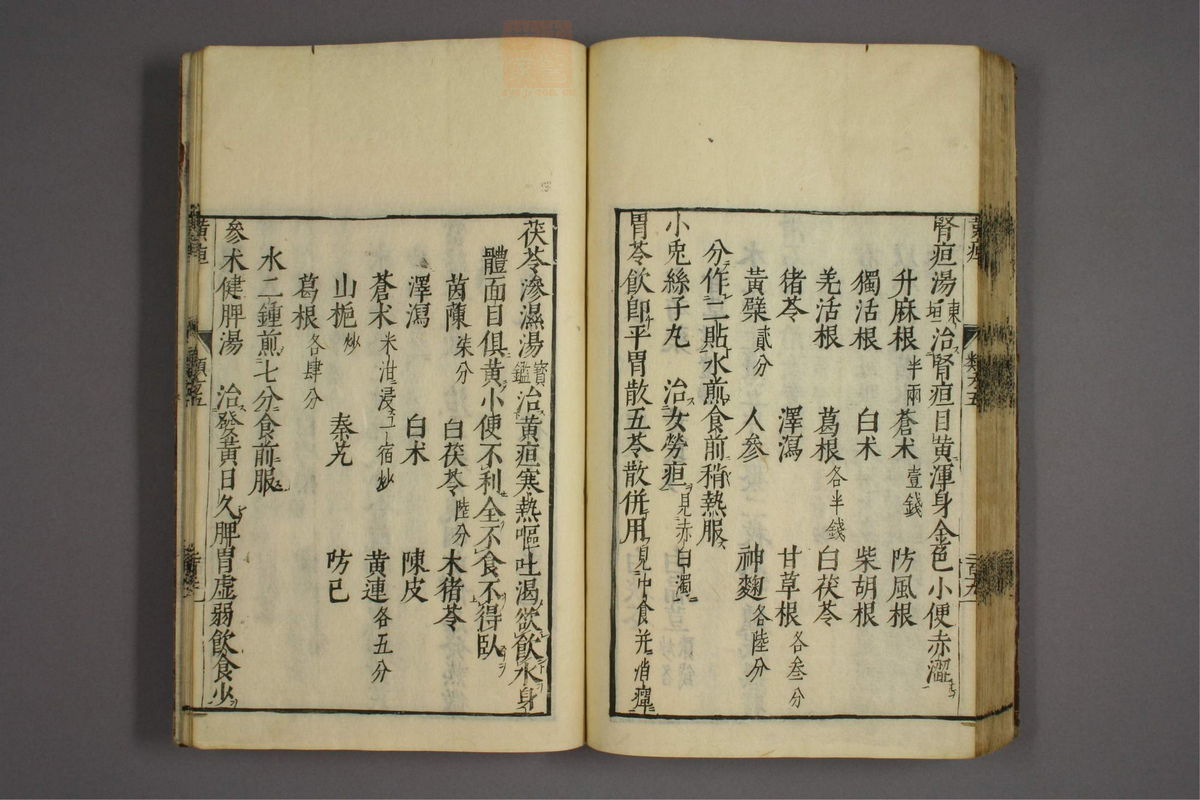 腎疸湯東垣治腎疸目黃渾身金色小便赤澀
升麻根半兩 蒼术壹錢 防風根
獨活根 白术 柴胡根
羌活根 葛根各半錢 白茯苓
猪苓 澤瀉 甘草根各叁分
黃蘗貳分 人參 神麴各陸分
分作二貼水煎食前稍熱服
小兎絲子丸 治女勞疸見赤白濁
胃苓飲即平胃散五苓散併用
茯苓滲濕湯寳鑑治黃疸寒熱嘔吐渴欲飲水身
體面目俱黃小便不利全不食不得臥
茵蔯柒分 白茯苓陸分 木猪苓
澤瀉 白术 陳皮
蒼术米泔浸一宿炒 黃連各五分
山梔炒 秦艽 防已
葛根各肆分
水二鍾煎七分食前服
參术健脾湯 治發黃日久脾胃虛弱飲食少